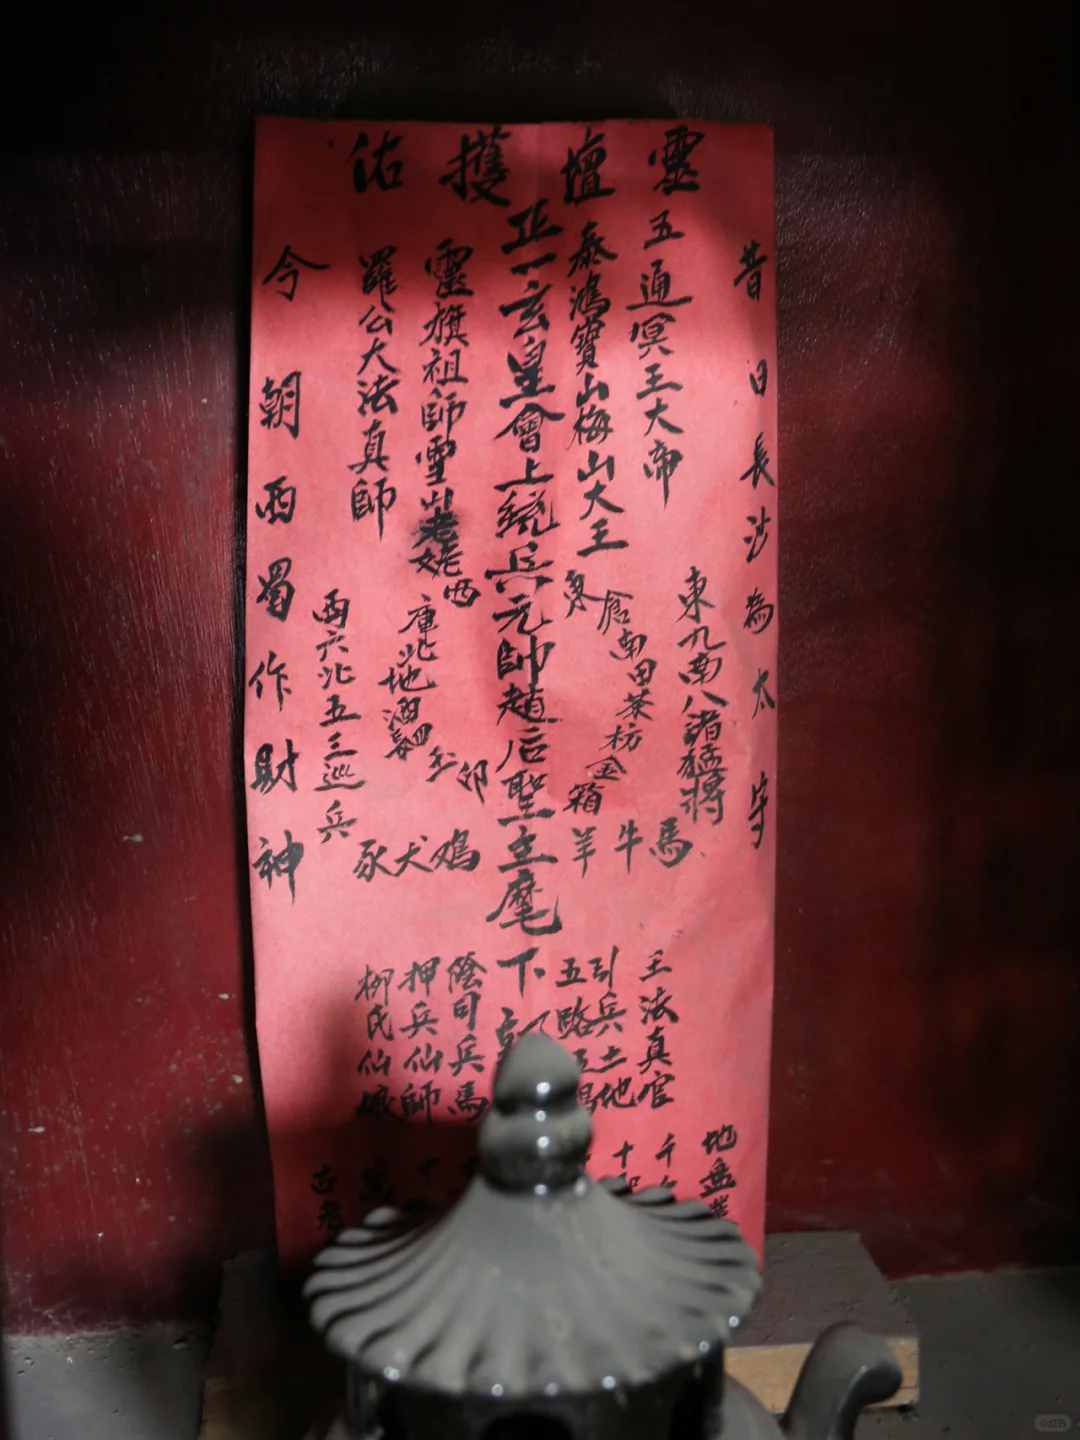 靈壇擭佑
昔日長沙為太守
五通冥王大帝
東九南八諸猛將
泰鴻寶山梅山大王
倉南田萊枋金箱
馬
牛
羊
正一玄皇會上統兵元帥趙后聖主麾下
靈旗祖師雪山老姥
西庫北地酒
卯
鴆犬豕
羅公大法真師
西六北五三巡兵
今朝西蜀作財神
王法真官
引兵土地
五路五昌
陰司兵馬
押兵仙師
柳氏仙娘
地盤業
千
十
十
古老
小红书